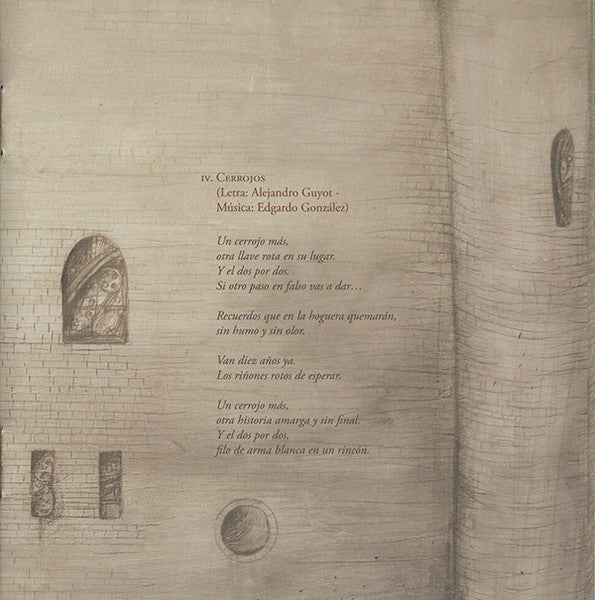 IV. Cerrojos
(Letra: Alejandro Guyot -
Música: Edgardo González)
Un cerrojo más,
otra llave rota en su lugar.
Y el dos por dos.
Si otro paso en falso vas a dar…
Recuerdos que en la hoguera quemarán,
sin humo y sin olor.
Van diez años ya.
Los riñones rotos de esperar.
Un cerrojo más,
otra historia amarga y sin final.
Y el dos por dos,
filo de arma blanca en un rincón.